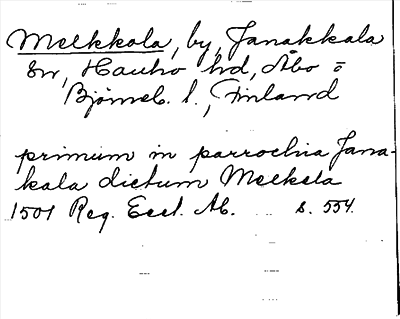 Melkkola, by, Janakkala
sn, Hauho hd, Åbo o
Björneb. l., Finland
primum in parrochia Jana-
kala dictum Melkela
1501 Reg. Eccl. Ab. s. 554.